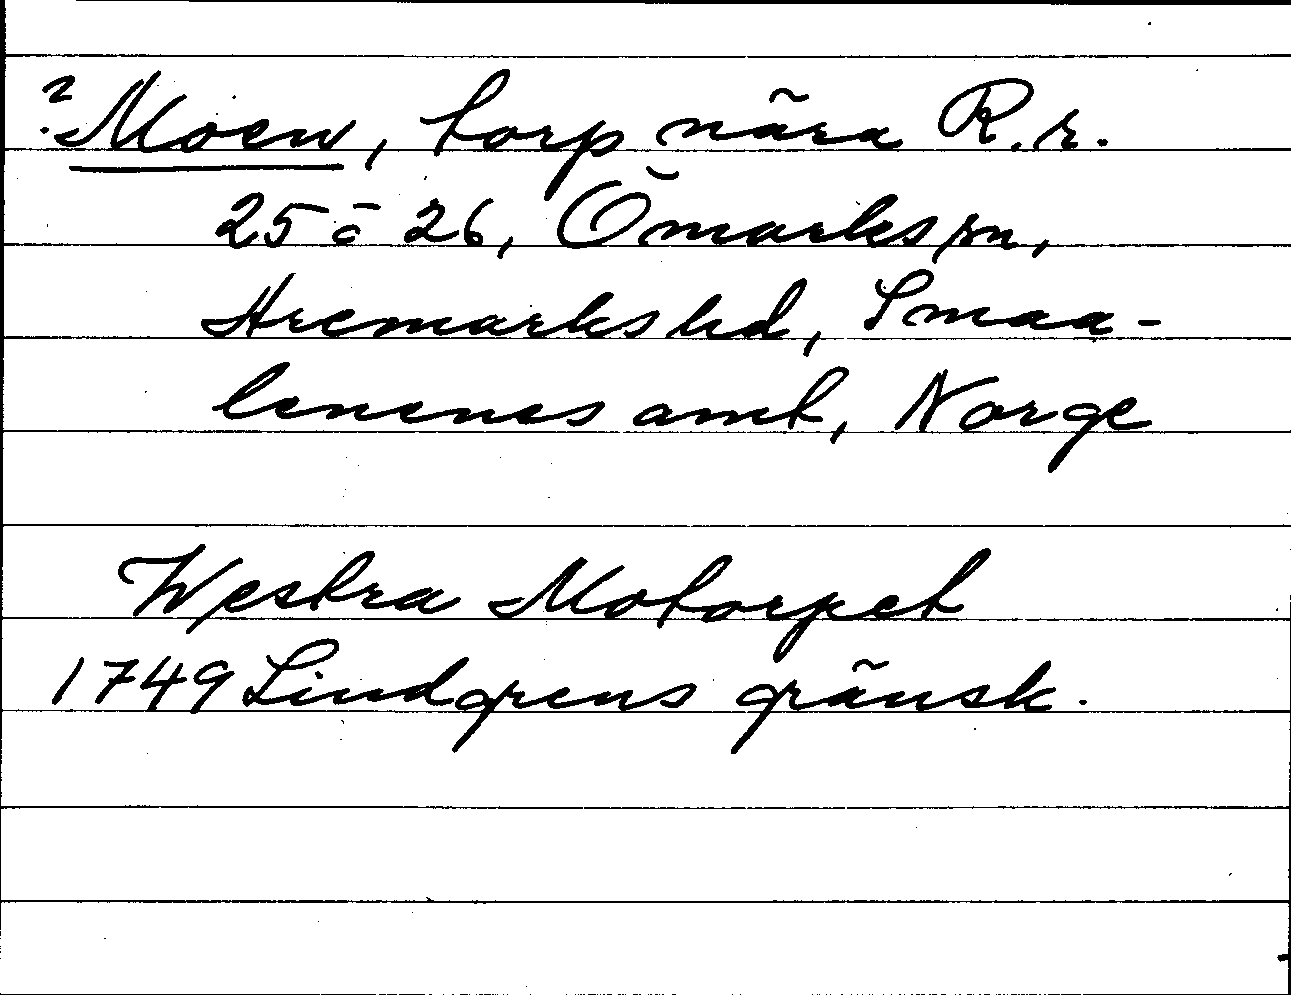 ? Moen, torp nära R.r.
25 à 26, Ömarks sn,
Aremarks hd, Smaa-
lenenes amt, Norge
Westra Motorpet
1749 Lindgrens gränsk.